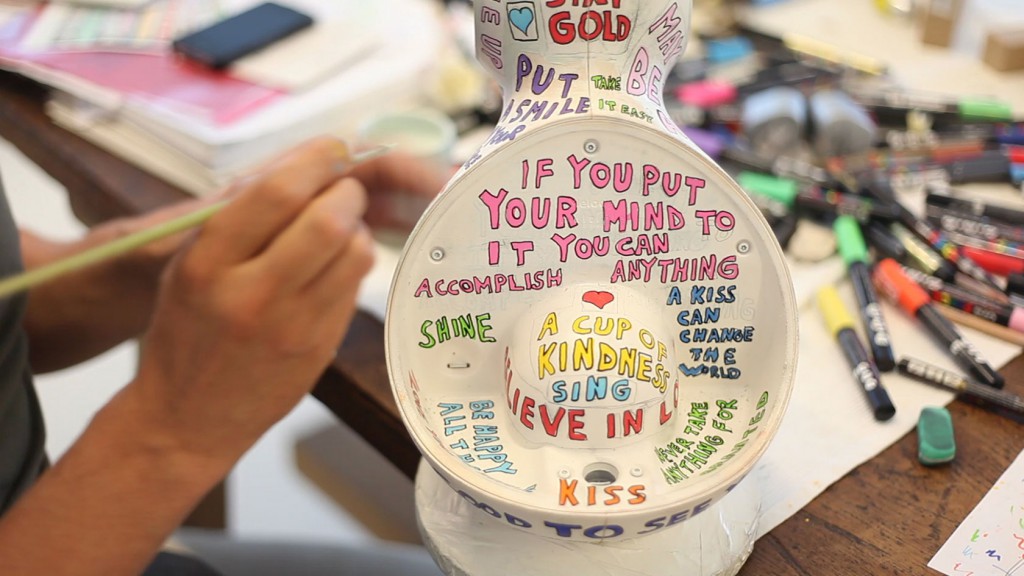 STAY
GOLD
PUT
A SMILE
TAKE
IT EASY
BE
IF YOU PUT
YOUR MIND TO
IT YOU CAN
ACCOMPLISH ANYTHING
SHINE
A CUP OF
KINDNESS
SING
LIEVE IN
A KISS
CAN
CHANGE
THE
WORLD
BE HAPPY
ALL TH
TAKE
ANYTHING FOR
KISS
OOD TO SEE